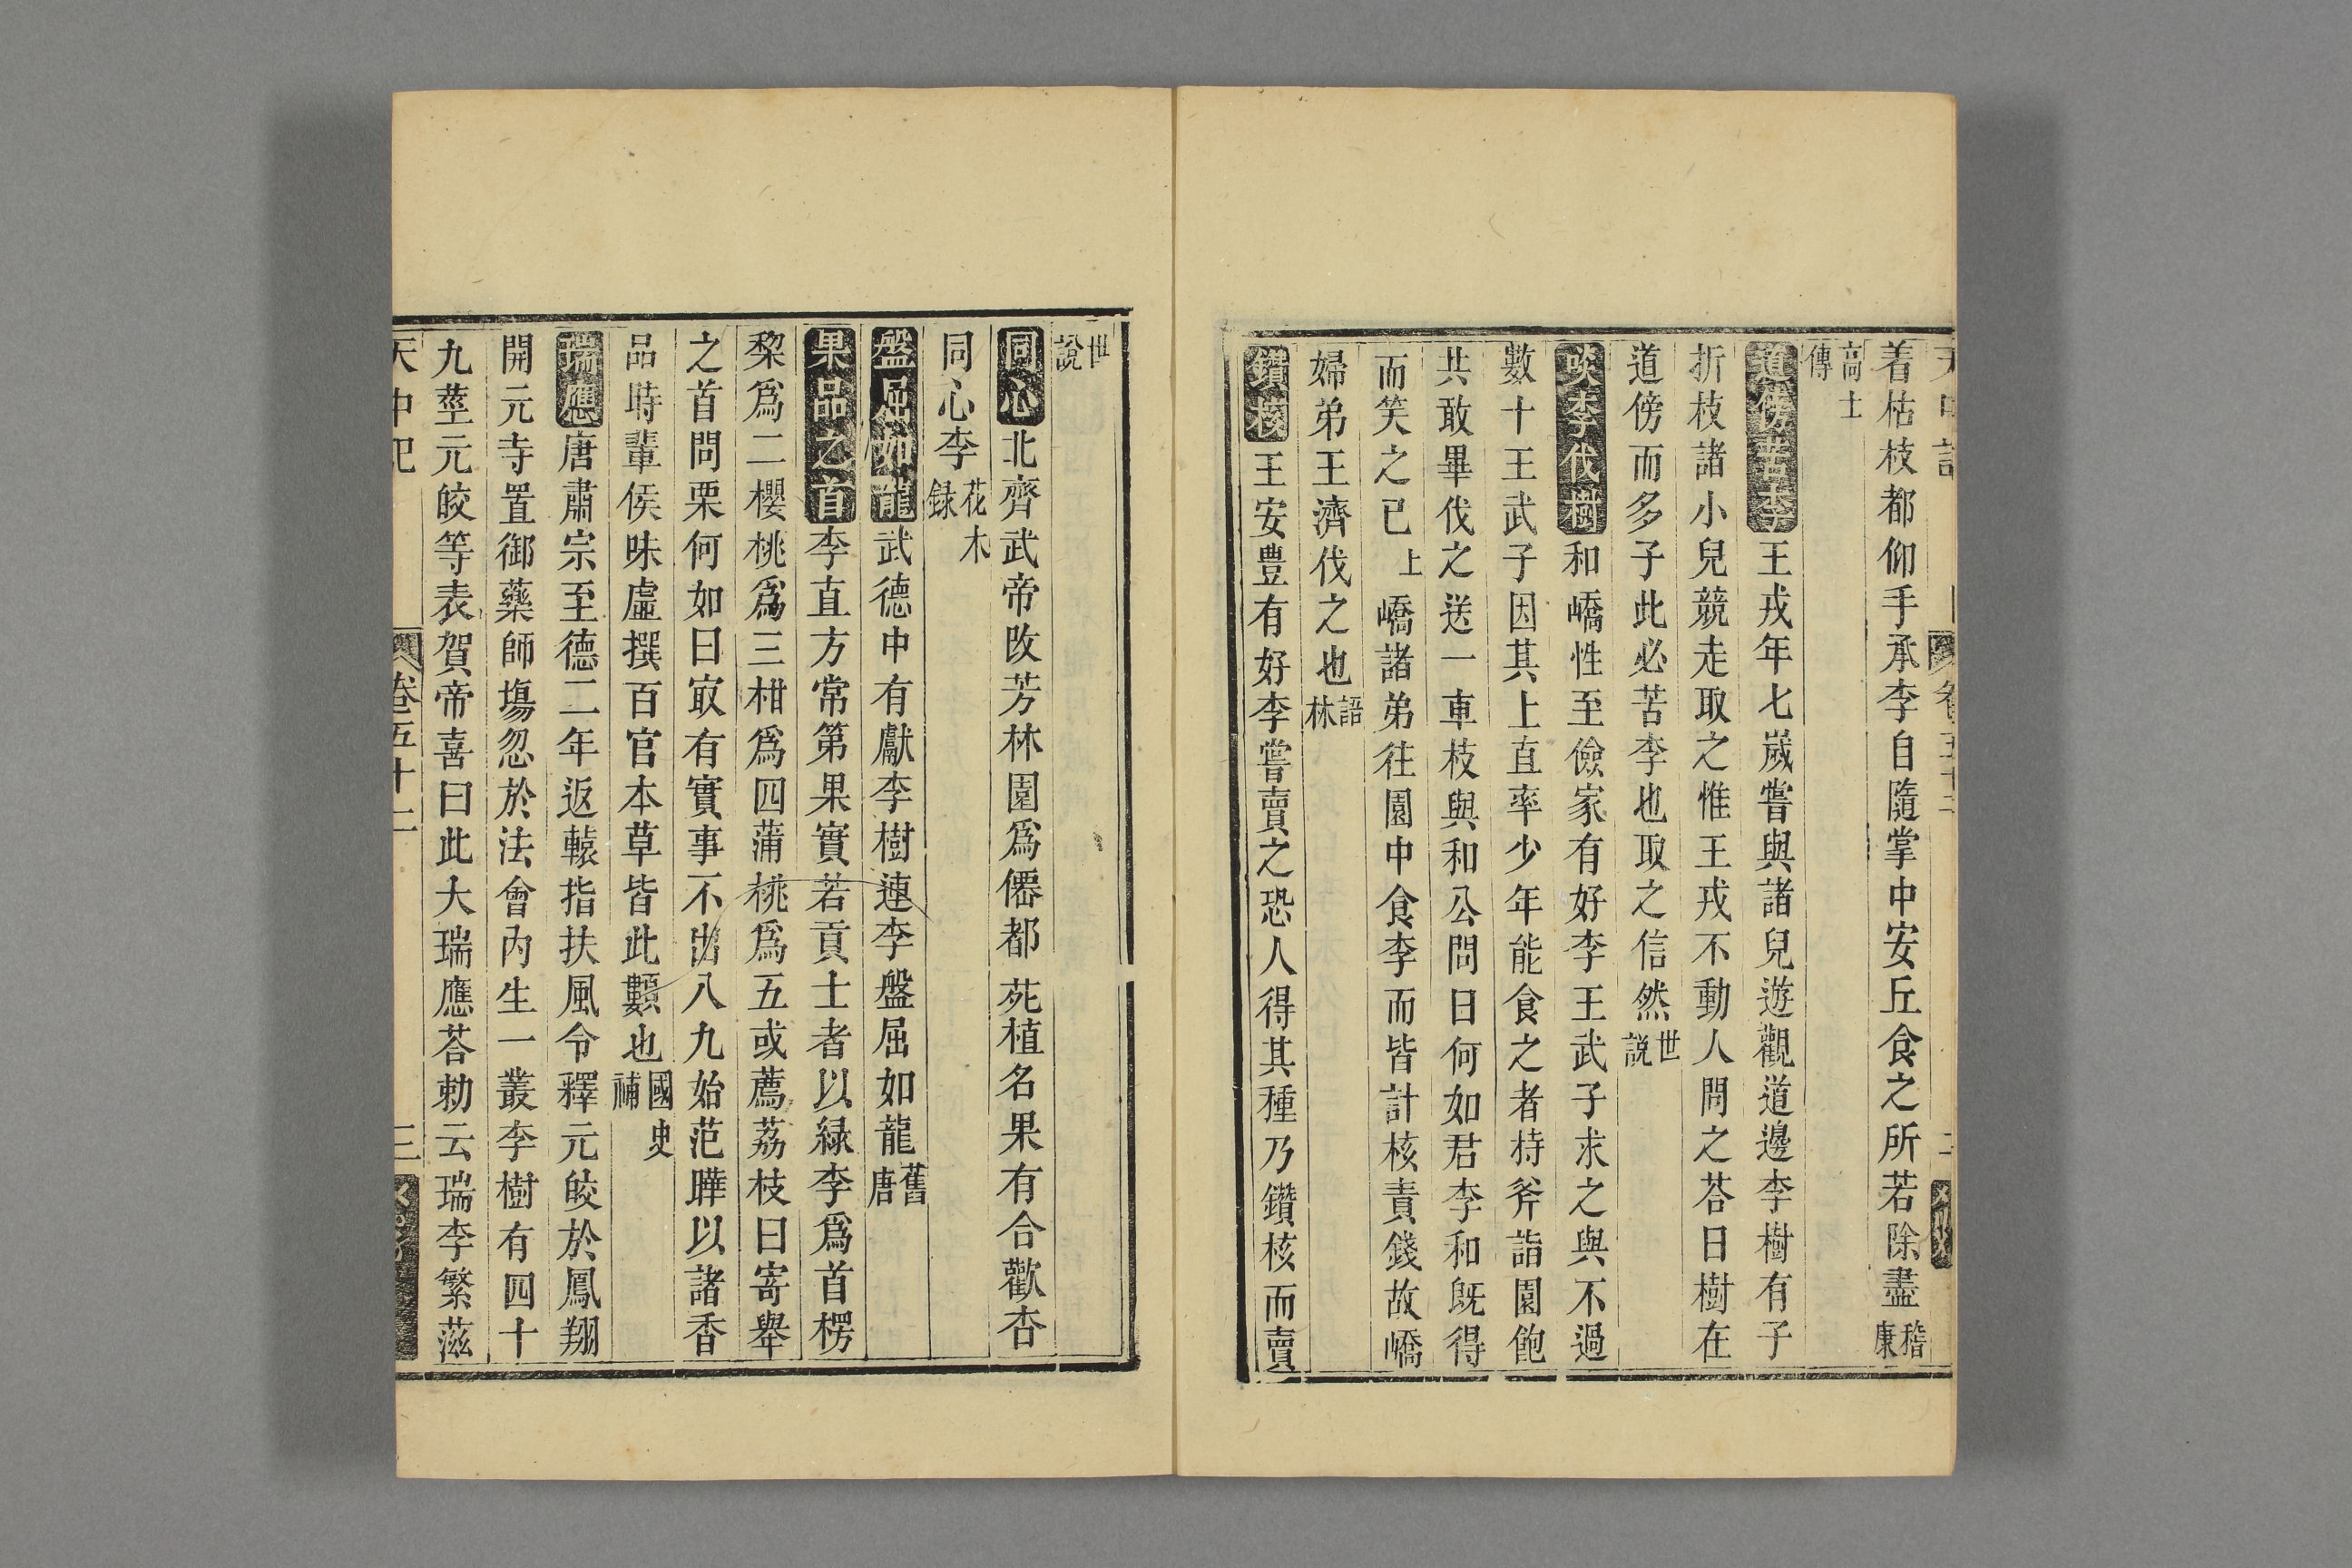 着枯枝都仰手承李自隨掌中安丘食之所若除盡嵇康
高士傳
道傍苦李王戎年七歲嘗與諸兒遊觀道邊李樹有子
折枝諸小兒競走取之惟王戎不動人問之荅曰樹在
道傍而多子此必苦李也取之信然世說
啖李伐樹和嶠性至儉家有好李王武子求之與不過
數十王武子因其上直率少年能食之者持斧詣園飽
共敢畢伐之送一車枝與和公問曰何如君李和既得
而笑之已上嶠諸弟往園中食李而皆計核責錢故嶠
婦弟王濟伐之也語林
鑽核王安豊有好李嘗賣之恐人得其種乃鑽核而賣
世說
同心北齊武帝改芳林園爲僊都苑植名果有合歡杏
同心李花木録
盤屈如龍武德中有獻李樹連李盤屈如龍舊唐
果品之首李直方常第果實若貢士者以緑李爲首楞
棃爲二櫻桃爲三柑爲四蒲桃爲五或薦荔枝曰寄舉
之首問栗何如曰㝡有實事不出八九始范曄以諸香
品時輩侯味虛撰百官本草皆此類也國史補
瑞應唐肅宗至德二年返轅指扶風令釋元皎於鳳翔
開元寺置御藥師塲忽於法會內生一叢李樹有四十
九莖元皎等表賀帝喜曰此大瑞應荅勅云瑞李繁滋
天中記 卷五十二 三